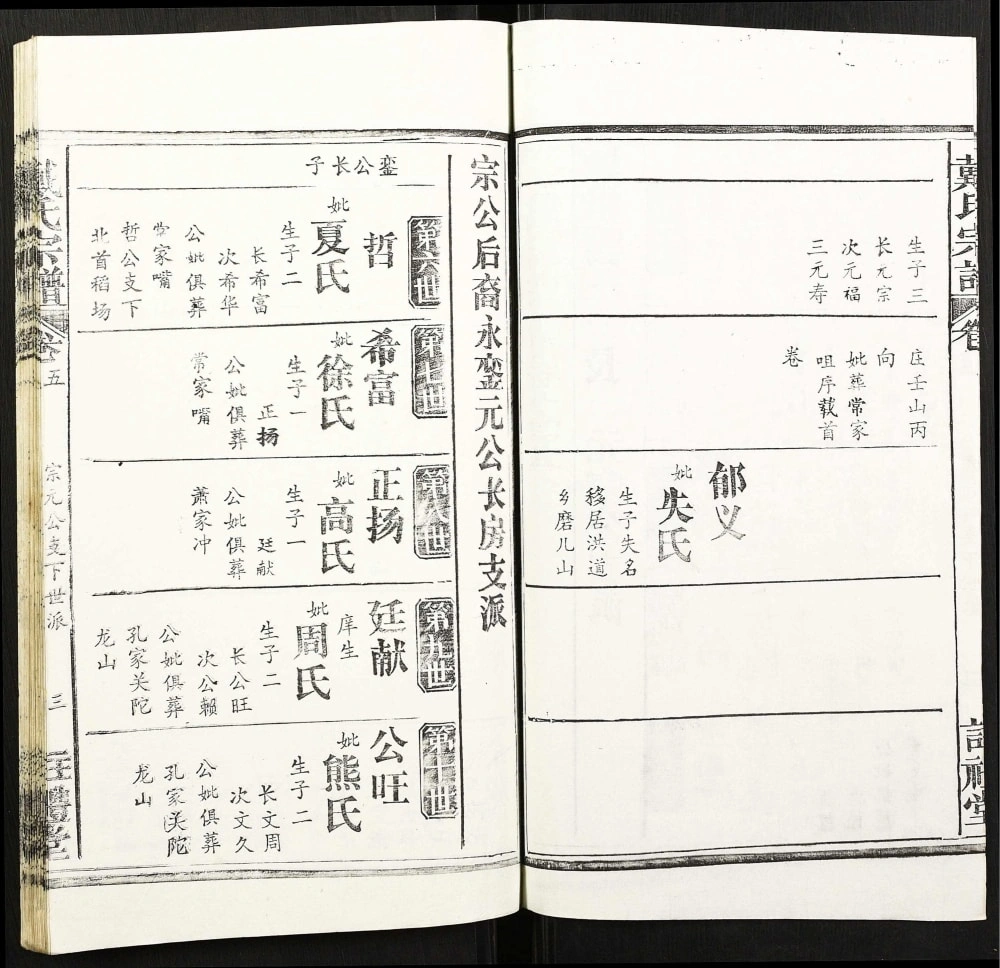 戴氏宗谱
卷
生子三
长元宗
次元福
三元寿
庄壬山丙
向
妣葬常家
咀序载首
卷
郁义
妣失氏
生子失名
移居洪道
乡磨儿山
宗公后裔永銮元公长房支派
銮公长子
第六世
哲
妣夏氏
生子二
长希富
次希华
公妣俱葬
常家嘴
哲公支下
北首稻场
第七世
希富
妣徐氏
生子一
正扬
公妣俱葬
常家嘴
第八世
正扬
妣高氏
生子一
廷献
公妣俱葬
萧家冲
第九世
廷献
庠生
妣周氏
生子二
长公旺
次公赖
公妣俱葬
孔家关陀
龙山
第十世
公旺
妣熊氏
生子二
长文周
次文久
公妣俱葬
孔家关陀
龙山
戴氏宗谱
卷五
宗元公支下世派
三